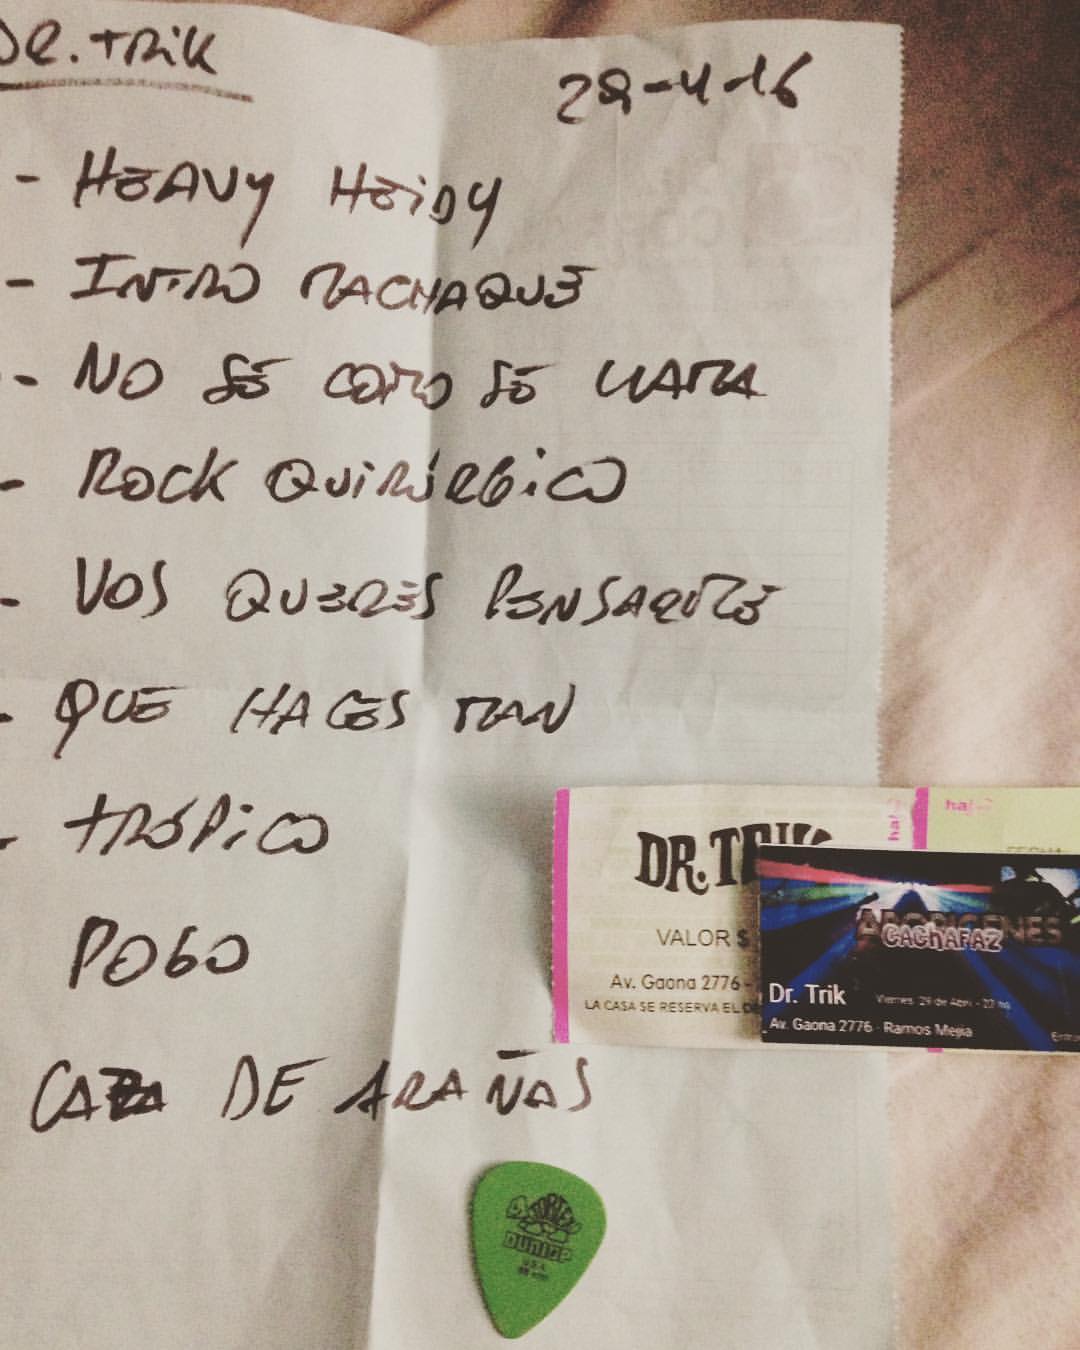 DR. TRIK
29-4-16
- HEAVY HEIDY
- INTRO MACHAQUE
- NO SÉ COMO SE LLAMA
- ROCK QUIRÚRGICO
- VOS QUERES PENSAQUE
- QUE HACES MAN
- TRÓPICO
POGO
CAZA DE ARAÑAS
DR. TRIK
VALOR $
Av. Gaona 2776 -
LA CASA SE RESERVA EL
ABORIGENES
CACHAFAZ
Dr. Trik
Viernes 29 de Abril - 23 hs
Av. Gaona 2776 - Ramos Mejia
TORTEX
DUNLOP
U.S.A.